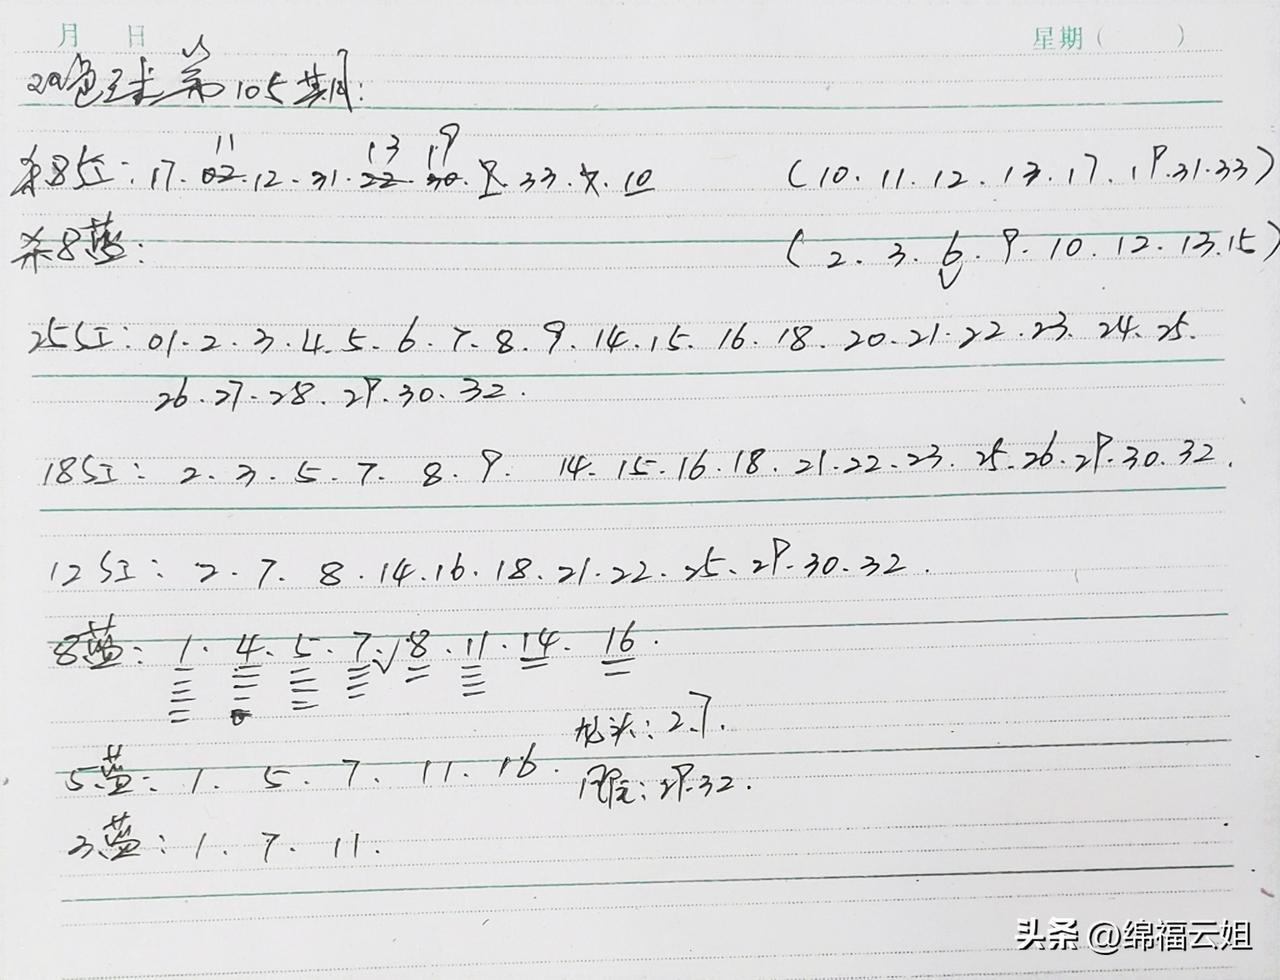 月 日 星期( )
双色球第105期:
11 13 19
杀8红:17.02.12.31.22.30.9.33.7.10 (10.11.12.13.17.19.31.33)
杀8蓝: (2.3.6.9.10.12.13.15)
25红:01.2.3.4.5.6.7.8.9.14.15.16.18.20.21.22.23.24.25.
26.27.28.29.30.32.
18红:2.3.5.7.8.9.14.15.16.18.21.22.23.25.26.29.30.32.
12红:2.7.8.14.16.18.21.22.25.29.30.32.
8蓝:1.4.5.7.8.11.14.16.
龙头:2.7.
5蓝:1.5.7.11.16.
凤尾:29.32.
3蓝:1.7.11.
头条 @绵福云姐